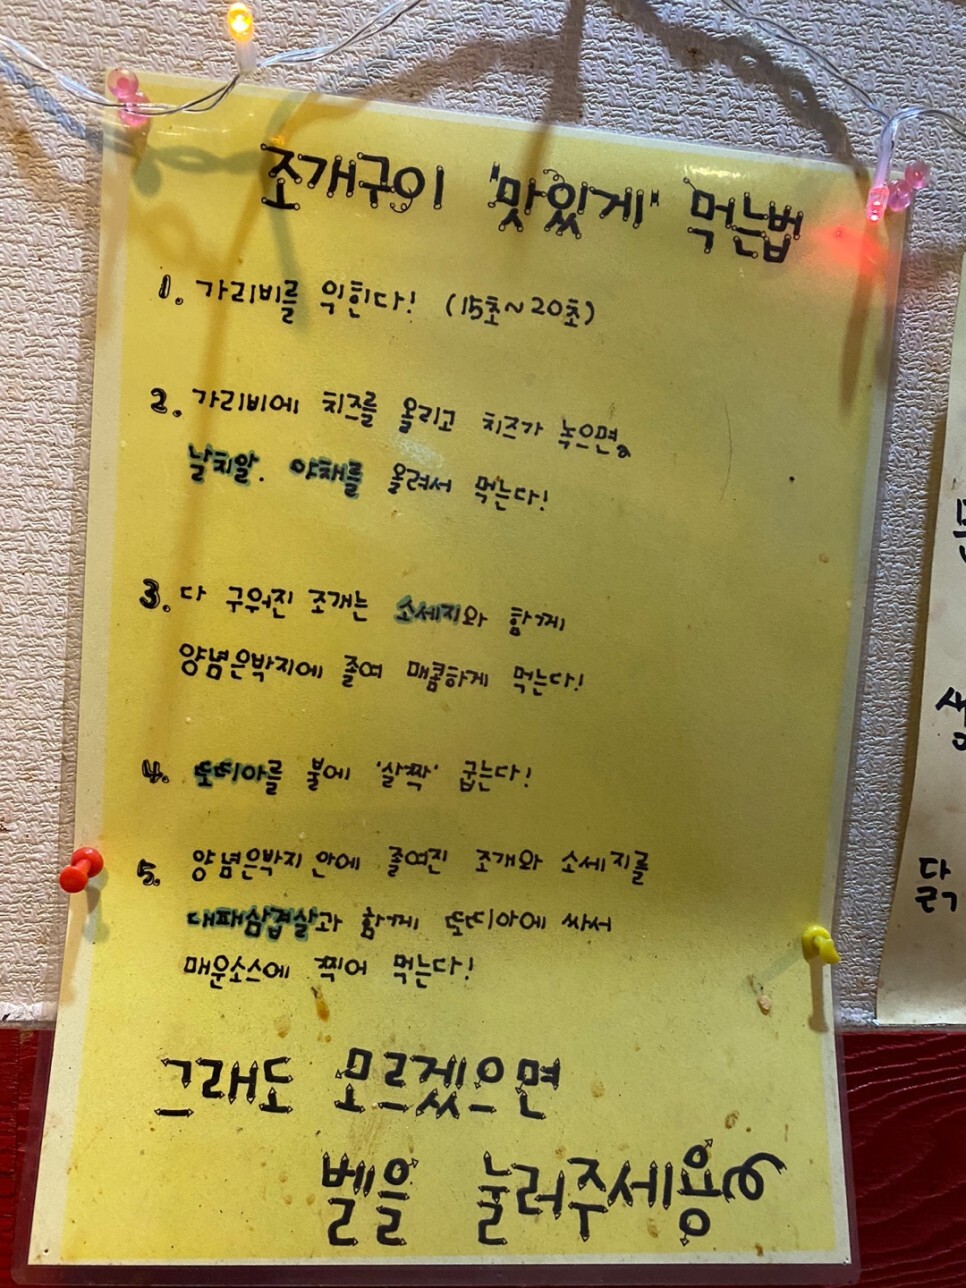 조개구이 "맛있게" 먹는법
1. 가리비를 익힌다! (15초~20초)
2. 가리비에 치즈를 올리고 치즈가 녹으면,
날치알. 야채를 올려서 먹는다!
3. 다 구워진 조개는 소세지와 함께
양념은박지에 졸여 매콤하게 먹는다!
4. 또띠아를 불에 '살짝' 굽는다!
5. 양념은박지 안에 졸여진 조개와 소세지를
대패삼겹살과 함께 또띠아에 싸서
매운소스에 찍어 먹는다!
그래도 모르겠으면
벨을 눌러주세용